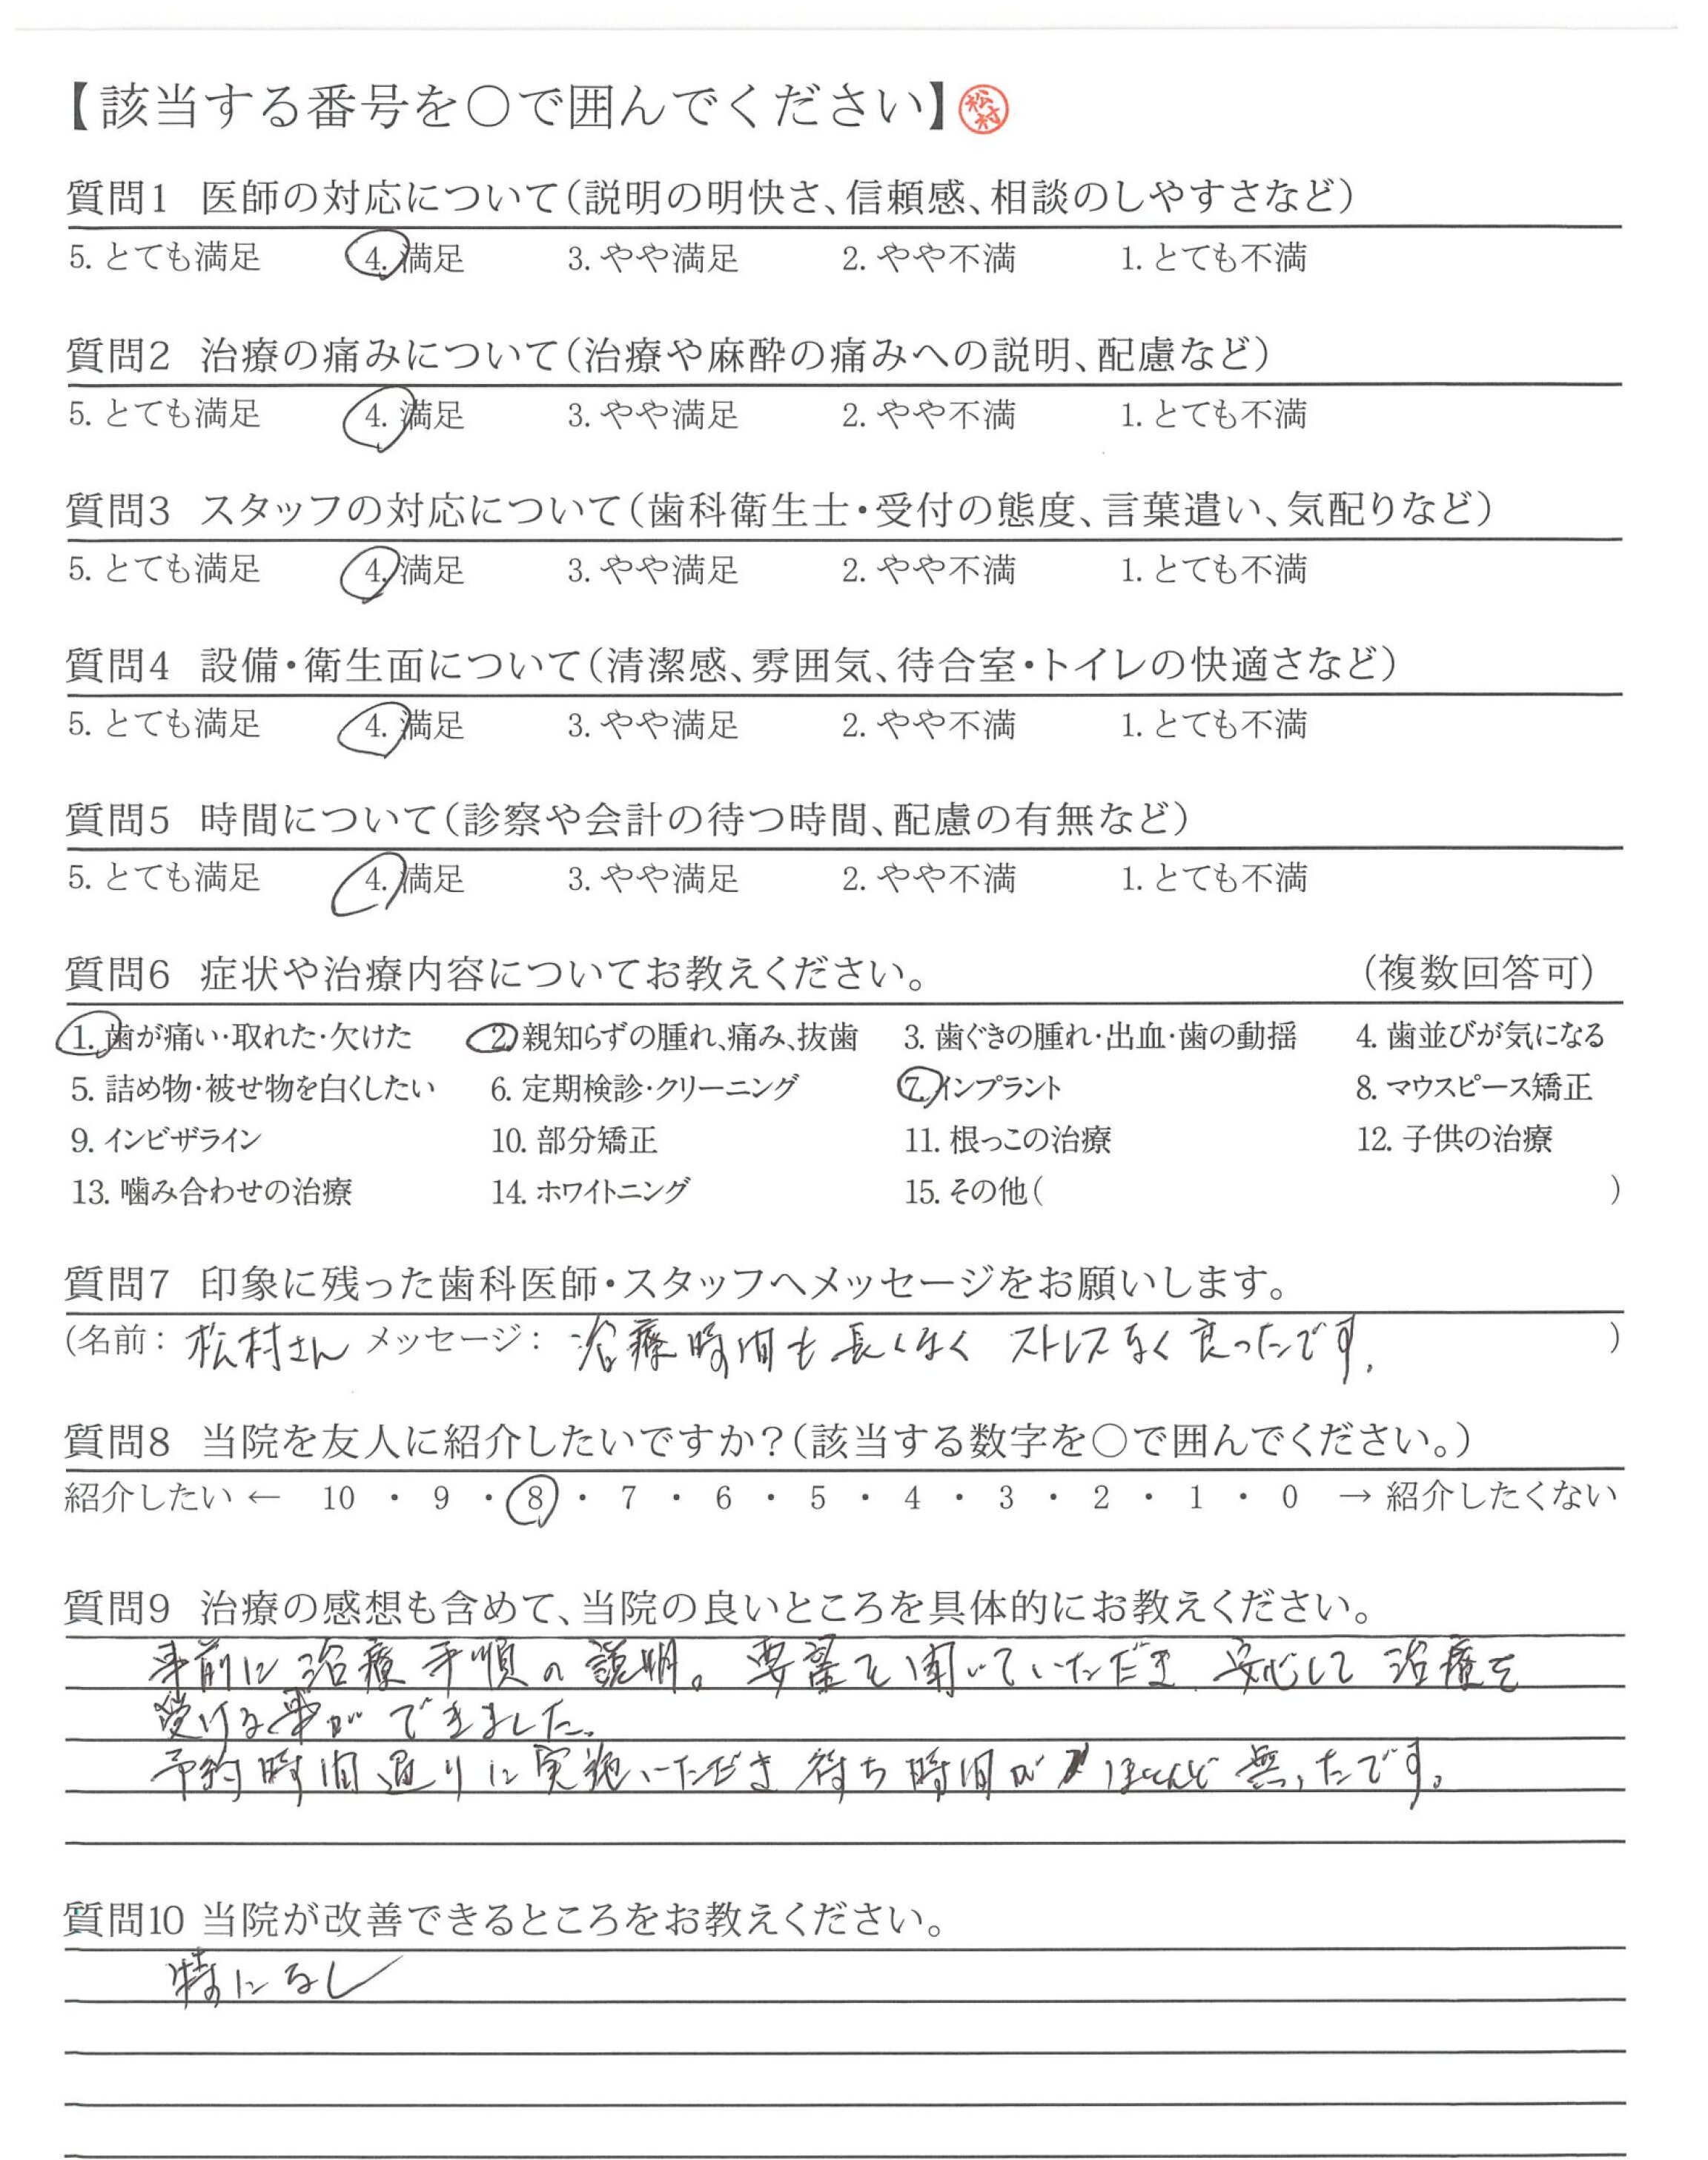 【該当する番号を○で囲んでください】松村
質問1 医師の対応について（説明の明快さ、信頼感、相談のしやすさなど）
5. とても満足 4. 満足 3. やや満足 2. やや不満 1. とても不満
質問2 治療の痛みについて（治療や麻酔の痛みへの説明、配慮など）
5. とても満足 4. 満足 3. やや満足 2. やや不満 1. とても不満
質問3 スタッフの対応について（歯科衛生士・受付の態度、言葉遣い、気配りなど）
5. とても満足 4. 満足 3. やや満足 2. やや不満 1. とても不満
質問4 設備・衛生面について（清潔感、雰囲気、待合室・トイレの快適さなど）
5. とても満足 4. 満足 3. やや満足 2. やや不満 1. とても不満
質問5 時間について（診察や会計の待つ時間、配慮の有無など）
5. とても満足 4. 満足 3. やや満足 2. やや不満 1. とても不満
質問6 症状や治療内容についてお教えください。 （複数回答可）
1. 歯が痛い・取れた・欠けた 2. 親知らずの腫れ、痛み、抜歯 3. 歯ぐきの腫れ・出血・歯の動揺 4. 歯並びが気になる
5. 詰め物・被せ物を白くしたい 6. 定期検診・クリーニング 7. インプラント 8. マウスピース矯正
9. インビザライン 10. 部分矯正 11. 根っこの治療 12. 子供の治療
13. 噛み合わせの治療 14. ホワイトニング 15. その他（ ）
質問7 印象に残った歯科医師・スタッフへメッセージをお願いします。
（名前： 松村さん メッセージ： 治療時間も長くなく ストレスなく良ったです。 ）
質問8 当院を友人に紹介したいですか？（該当する数字を○で囲んでください。）
紹介したい ← 10 ・ 9 ・ 8 ・ 7 ・ 6 ・ 5 ・ 4 ・ 3 ・ 2 ・ 1 ・ 0 → 紹介したくない
質問9 治療の感想も含めて、当院の良いところを具体的にお教えください。
事前に治療手順の説明。要望を聞いていただき、安心して治療を
受ける事ができました。
予約時間通りに実施いただき待ち時間がほとんど無ったです。
質問10 当院が改善できるところをお教えください。
特になし